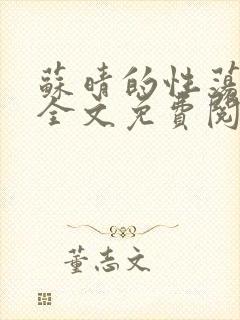 蘇晴的性蕩
全文免費閱
董志文